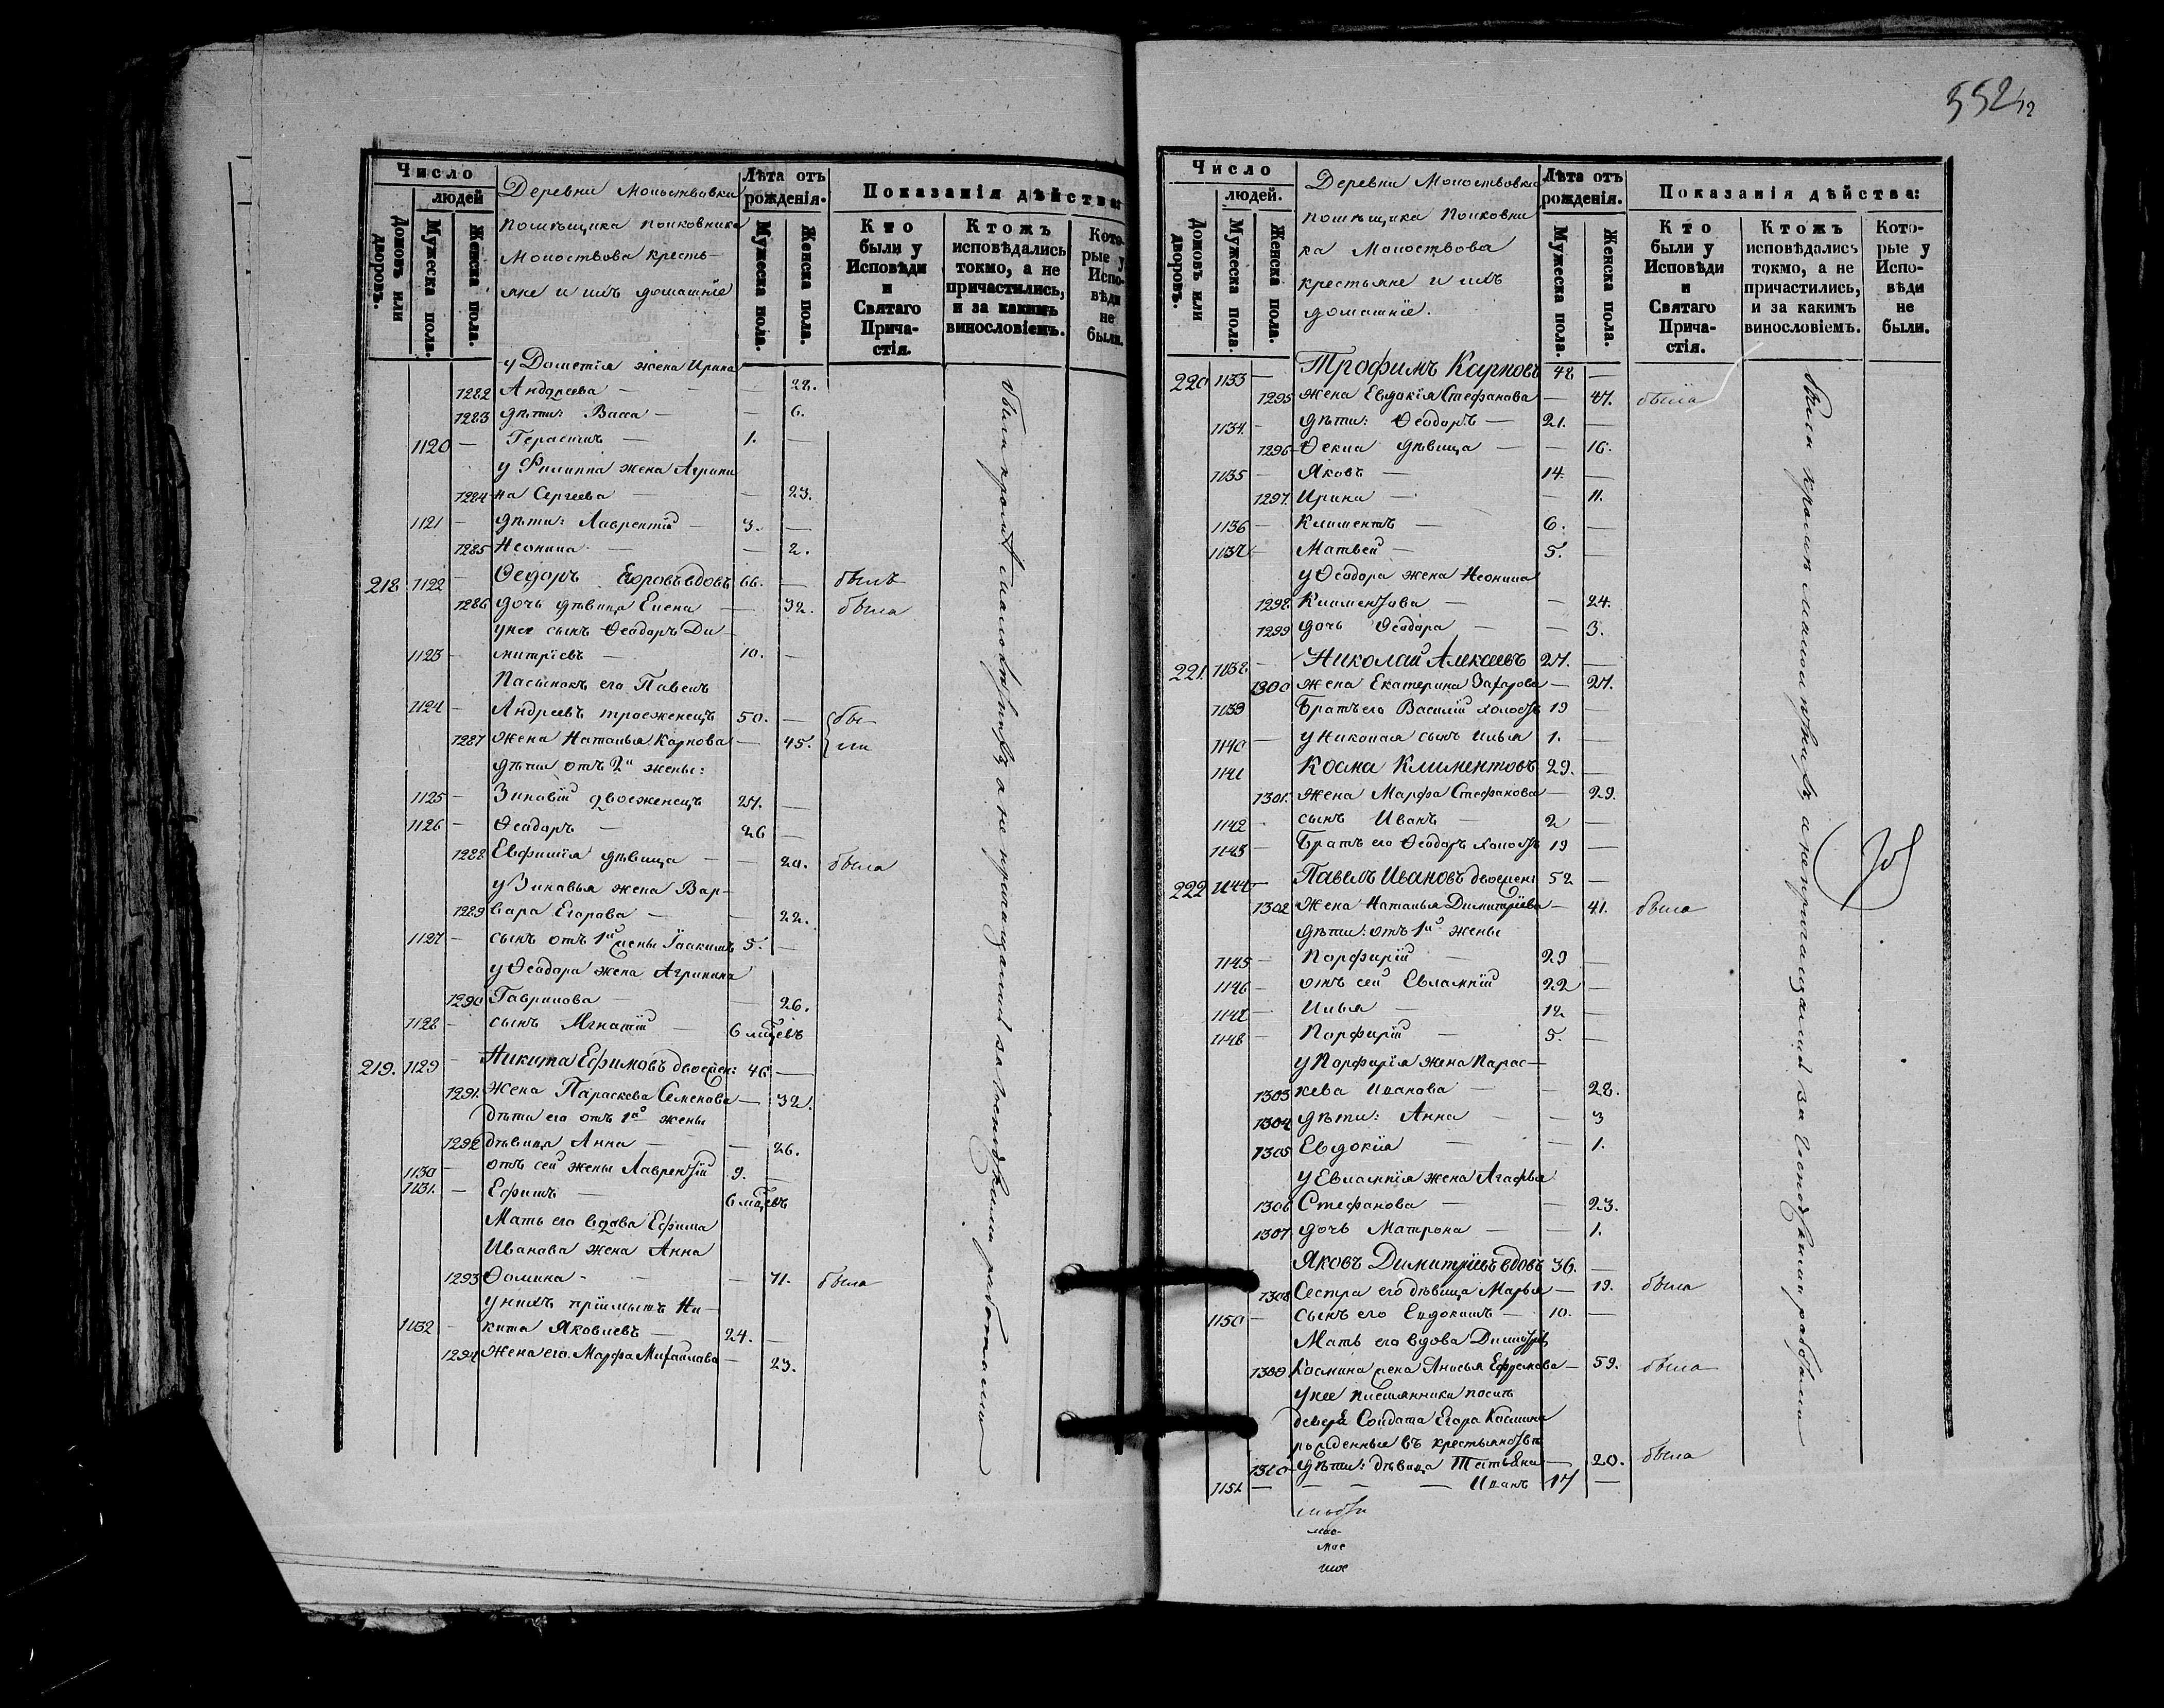 552
Число
людей
Домовъ или дворовъ.
Мужеска пола.
Женска пола.
Деревни Молоствовки
помѣщика полковника
Молоствова кресть-
яне и ихъ домашніе
Лѣта отъ рожденія.
Мужеска пола.
Женска пола.
Показанія дѣйства:
Кто были у Исповѣди и Святаго Прича-стія.
Ктожъ исповѣдались токмо, а не причастились, и за какимъ винословіемъ.
Кото-рые у Испо-вѣди не были.
у Дометія жена Ирина
1282 Андреева — — 28.
1283 дѣти: Васса — — 6.
1120 — Герасимъ — 1. —
у Филиппа жена Агрипи
1284 на Сергеева — — 23.
1121 — дѣти: Лаврентій — 3. —
1285 Неонила — — 2.
218 1122 — Ѳедоръ Егоровъ вдовъ 66. — былъ
1286 дочь дѣвица Елена — 32. была
у нея сынъ Ѳеодоръ Ди-
1123 — митріевъ — 10. —
Пасынокъ его Павелъ
1124 — Андреевъ троеженецъ 50. — бы-
1287 жена Наталья Карпова — 45. ли
дѣти отъ 2й жены:
1125 — Зиновій двоеженецъ 27. —
1126 — Ѳеодоръ — 26 —
1288 Евфимія дѣвица — — 20. была
у Зиновья жена Вар-
1289 вара Егорова — — 22.
1127 — сынъ отъ 1й жены Іоакимъ 5. —
у Ѳеодора жена Агрипина
1290 Гаврилова — — 26.
1128 — сынъ Игнатій — 6 мцевъ
219. 1129 — Никита Ефимовъ двоежен: 46 —
1291. жена Параскева Семенова — 32.
дѣти его отъ 1й жены
1292 дѣвица Анна — — 26.
1130 — отъ сей жены Лаврентій 9. —
1131. — Ефимъ — 6 мцевъ
Мать его вдова Ефима
Иванова жена Анна
1293 Ѳомина - — — 71. была
у нихъ пріимышъ Ни-
1132 — кита Яковлевъ — 24. —
1294 жена его Марфа Михайлова — 23.
были кромѣ малолѣтнихъ, а не причащались за господскими работами
Число
людей.
Домовъ или дворовъ.
Мужеска пола.
Женска пола.
Деревни Молоствовки
помѣщика Полковни
ка Молоствова
крестьяне и ихъ
домашніе.
Лѣта отъ рожденія.
Мужеска пола.
Женска пола.
Показанія дѣйства:
Кто были у Исповѣди и Святаго Прича-стія.
Ктожъ исповѣдались токмо, а не причастились, и за какимъ винословіемъ.
Кото-рые у Испо-вѣди не были.
220 1133 — Трофимъ Карповъ 48 —
1295 жена Евдокія Стефанова — 47. была
1134. — дѣти: Ѳеодоръ — 21. —
1296 Ѳекла дѣвица — — 16.
1135 — Яковъ — 14. —
1297. Ирина — — 11.
1136 — Климентъ — 6. —
1137 — Матвей — 5. —
у Ѳеодора жена Неонила
1298 Климентова — — 24.
1299 дочь Ѳеодора — — 3.
221. 1138 — Николай Алексеевъ 27. —
1300 жена Екатерина Захарова — 27.
1139 Братъ его Василій холостъ 19 —
1140 — у Николая сынъ Илья 1. —
1141 Косма Климентовъ 29. —
1301. жена Марфа Стефанова — 29.
1142 — сынъ Иванъ — 2 —
1143 — Братъ его Ѳеодоръ холостъ 19 —
222 1144 — Павелъ Ивановъ двоежен: 52 —
1302 жена Наталья Димитріева — 41. была
дѣти: отъ 1й жены
1145 — Порфирій — 29 —
1146 — отъ сей Евлампій 22 —
1147 — Илья — 12 —
1148 — Порфирій — 5. —
у Порфирія жена Парас-
1303 кева Иванова — — 28.
1304 дѣти: Анна — — 3
1305 Евдокія — — 1.
у Евлампія жена Агафья
1306 Стефанова — — 23.
1307 дочь Матрона — — 1.
Яковъ Димитріевъ вдовъ 36. —
1308 Сестра его дѣвица Марья — 19. была
1150 — сынъ его Евдокимъ — 10. —
Мать его вдова Димитрія
1309 Космина жена Анисья Ефремова — 59. была
у нее племянники послѣ
деверя Солдата Егора Космина
рожденные въ крестьянствѣ
1310 дѣти: дѣвица Татьяна — 20. была
1151 — — — — Иванъ 17 —
были кромѣ малолѣтнихъ, а не причащались за господскими работами